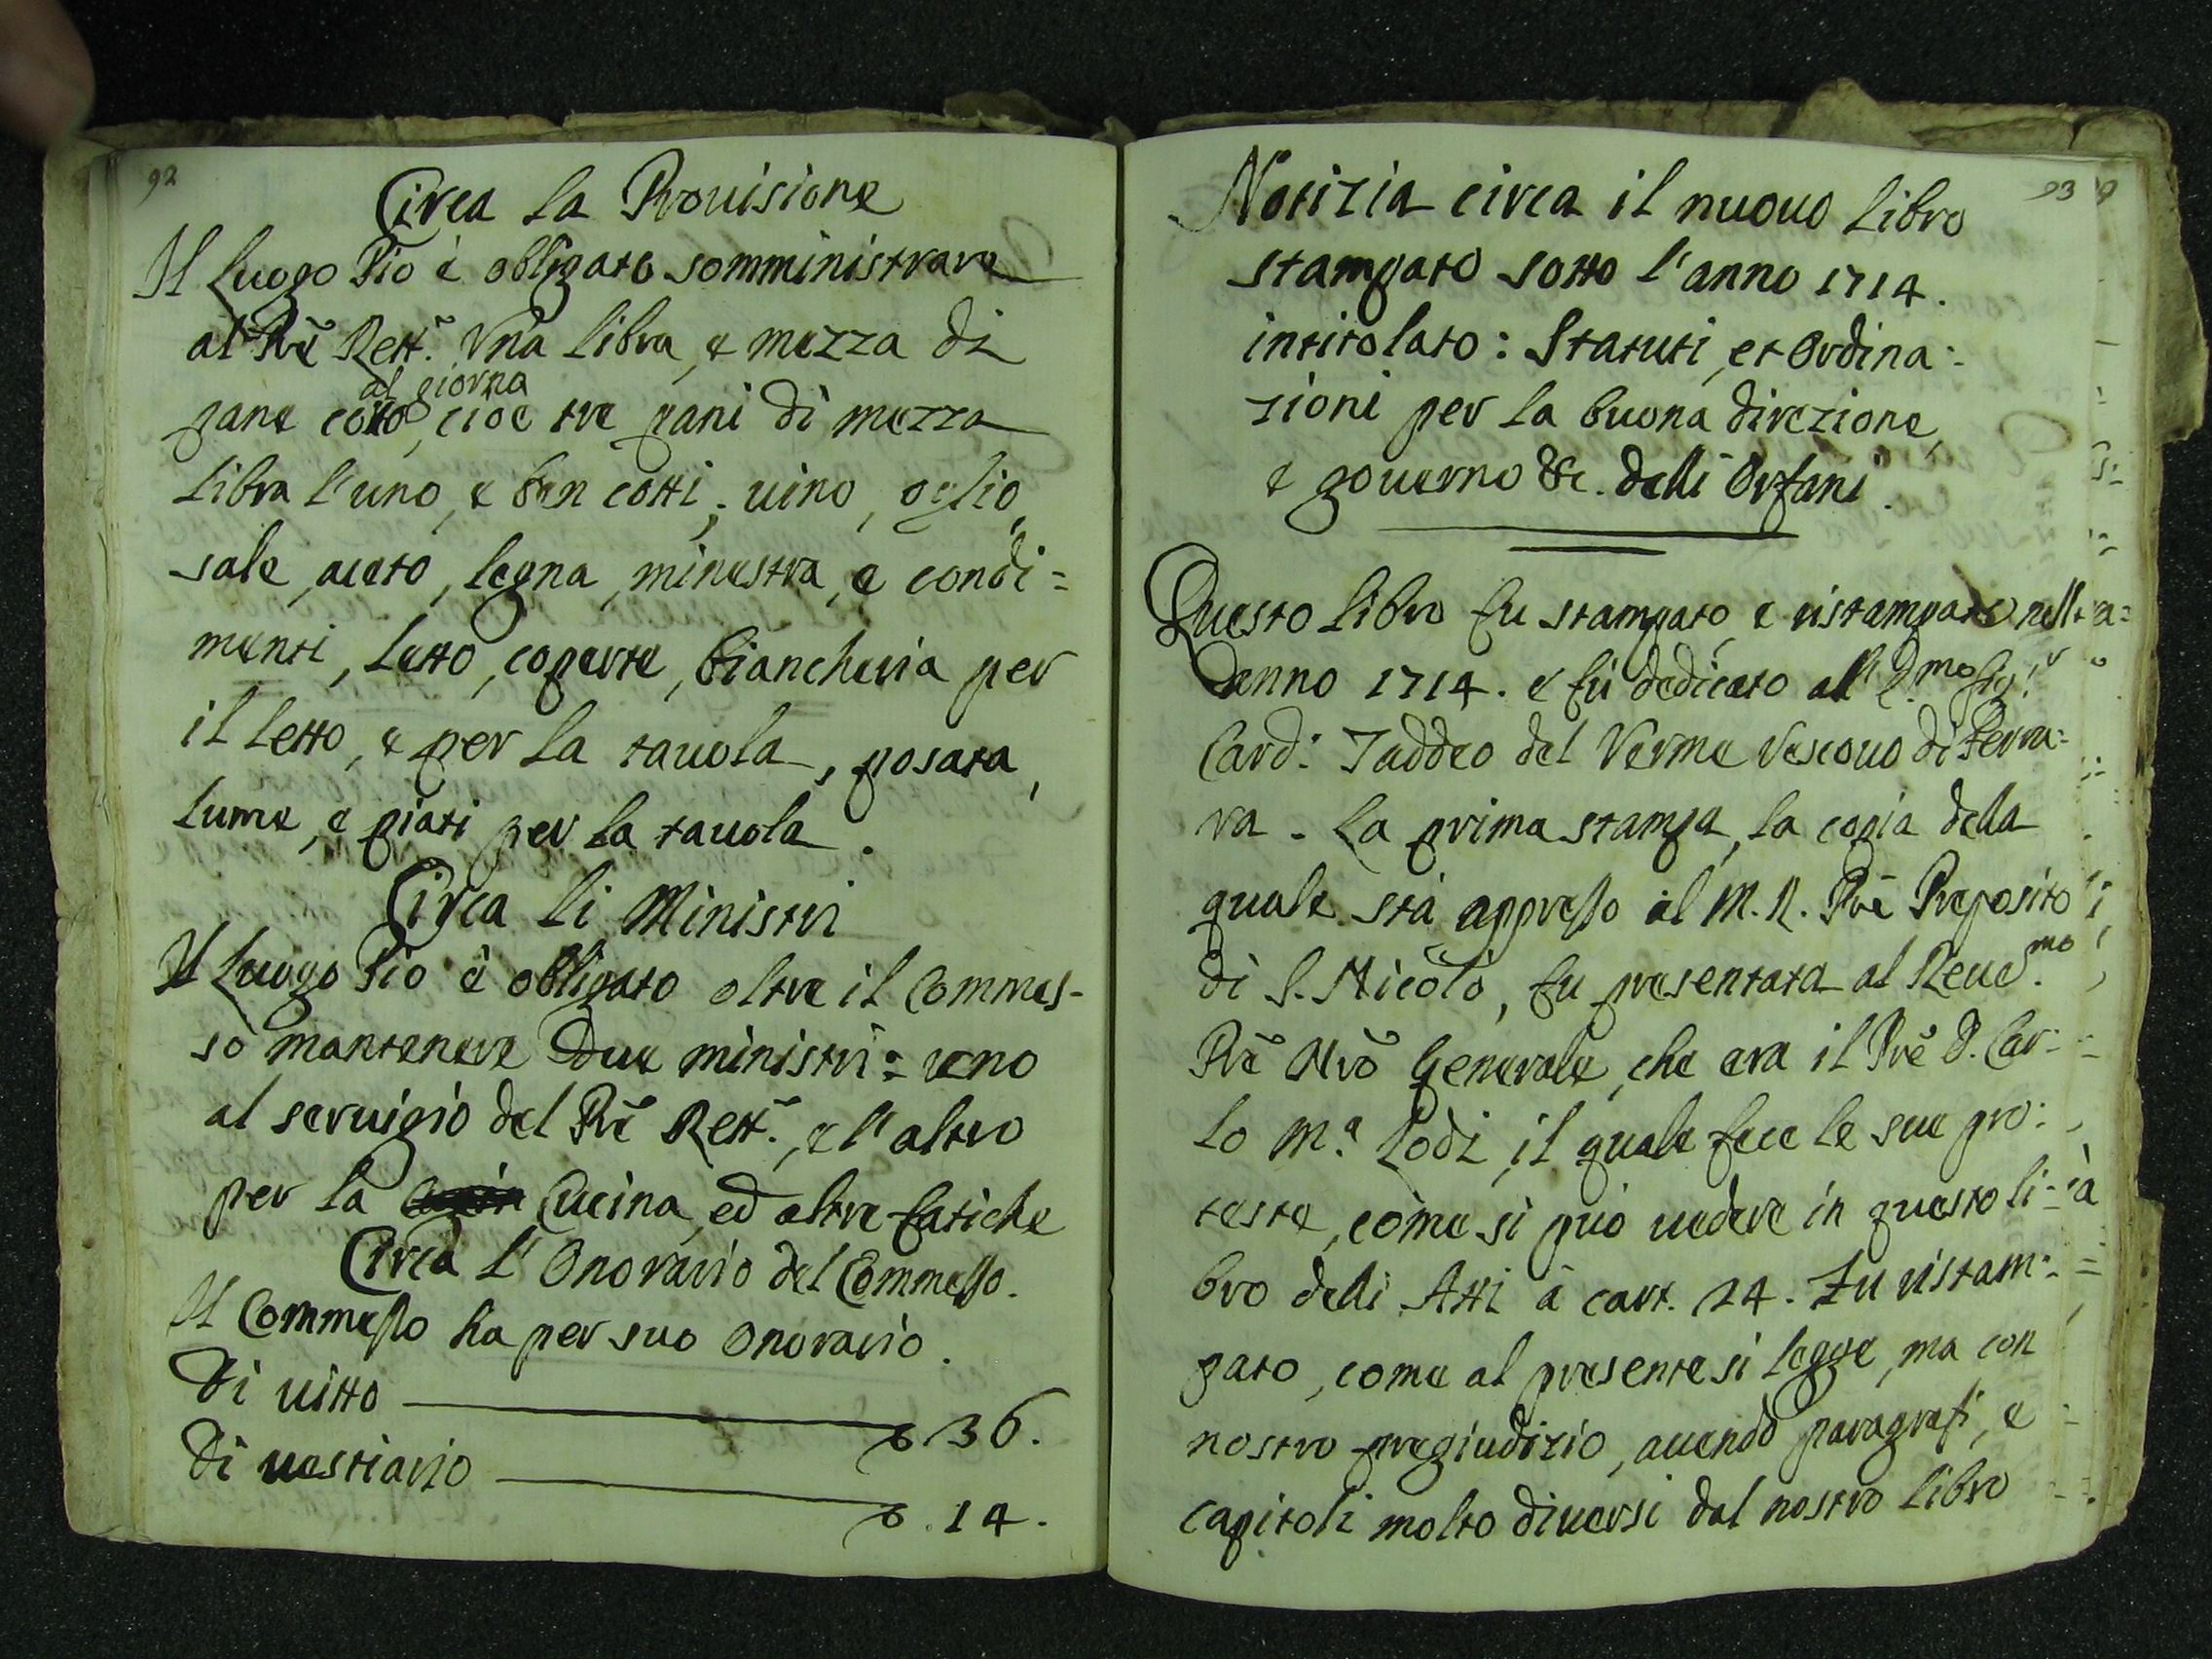 92
Circa la Prouisione
Il Luogo Pio è obligato somministrare
al Prē Rett.̃ Vna libra, e mezza di
al giorno
pane cotto, cioè tre pani di mezza
libra l'uno, e ben cotti; uino, oglio,
sale, aceto, legna, minestra, e condi=
menti, letto, coperte, biancheria per
il letto, e per la tauola, posata,
lume, e piati per la tauola.
Circa li Ministri
Il Luogo Pio è obligato oltre il Commes-
so mantenere Due ministri: uno
al seruigio del Prē Rett.̃, e l'altro
per la Cucina, ed altre fatiche
Circa l'Onorario del Commesso.
Il Commesso ha per suo onorario.
Di uitto — 36.
Di uestiario — 14.
93
Notizia circa il nuouo libro
stampato sotto l'anno 1714.
intitolato: Statuti, et Ordina:
zioni per la buona direzione,
e gouerno &c. delli Orfani.
Questo libro fu stampato, e ristampato
anno 1714. e fù dedicato all' E.mo Sig.r
Card: Taddeo del Verme Vescouo di Ferra:
ra. La prima stampa, la copia della
quale stà appresso il M. R. Prē Preposito
di S. Nicolò, fu presentata al Reud.mo
Prē Nrō Generale, che era il Prē D. Car:
lo M.a Lodi, il quale fece le sue pro:
teste, come si può uedere in questo li:
bro delli Atti à cart. 24. Fu ristam:
pato, come al presente si legge, ma con
nostro pregiudizio, auendo paragrafi, e
capitoli molto diuersi dal nostro libro